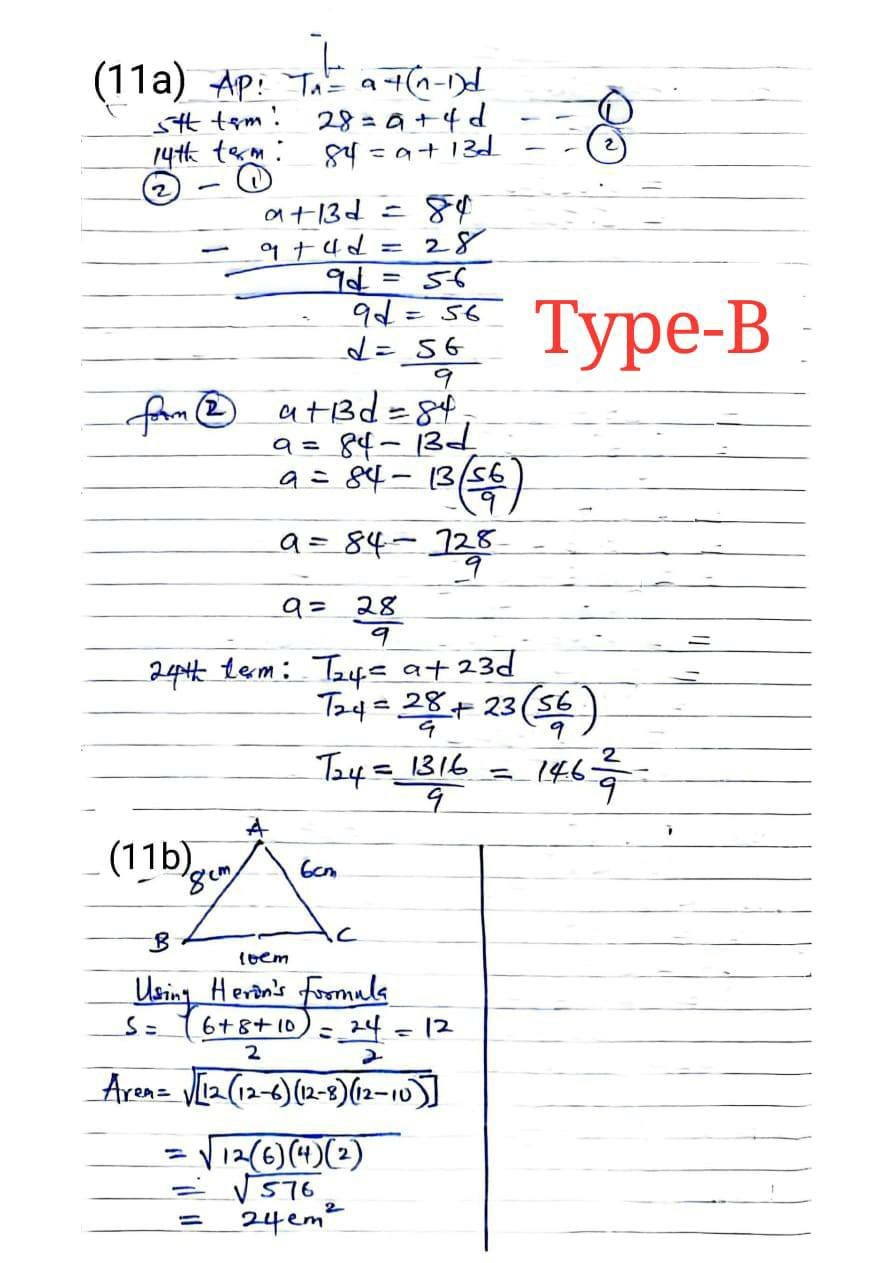 (11a) AP: Tn = a+(n-1)d
5th term: 28 = a + 4d - - ①
14th term: 84 = a + 13d - - ②
② - ①
a+13d = 84
- a + 4d = 28
9d = 56
9d = 56
d = 56/9
Type-B
form ② a+13d = 84
a = 84 - 13d
a = 84 - 13(56/9)
a = 84 - 728/9
a = 28/9
24th term: T24 = a + 23d
T24 = 28/9 + 23(56/9)
T24 = 1316/9 = 146 2/9
A
(11b) 8cm 6cm
B C
10cm
Using Heron's formula
S = (6+8+10)/2 = 24/2 = 12
Area = √[12(12-6)(12-8)(12-10)]
= √12(6)(4)(2)
= √576
= 24cm²